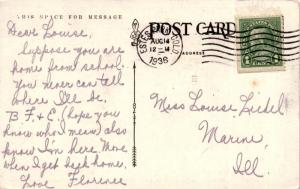 THIS SPACE FOR MESSAGE
POST CARD
ADDRESS
AUG 14
12 - M
1936
Dear Louise,
Suppose you are
home from school.
You never can tell
where I'll be,
B.F. & E. (hope you
know who I mean) also
know I'm here. More
when I get back home.
Love Florence
Miss Louise Liedel
Marine,
Ill.